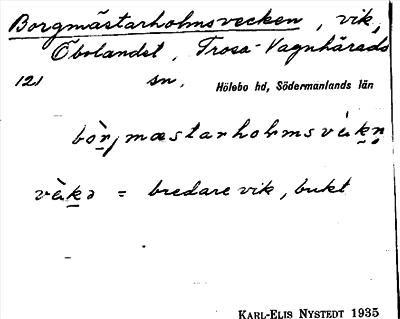 Borgmästarholmsvecken, vik,
Öbolandet, Trosa-Vagnhärads
121 sn, Hölebo hd, Södermanlands län
bòrjmæstarholmsvèkn
vèkə = bredare vik, bukt
KARL-ELIS NYSTEDT 1935